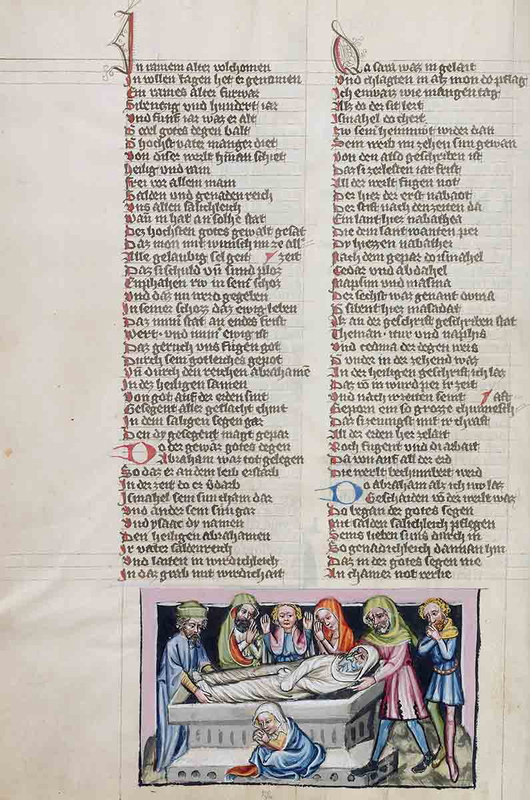 In ainem alter volchomen
In vollen tagen het er genomen
Ein raines alter fürwar
Sibentzig vnd hundert iar
Vnd fünf iar was er alt
gotes degen balt
hochst vater manger diet
Von diser werlt hinan schiet
Heilig vnd rain
Frei vor allem main
Sälden vnd genaden reich
Vns allen sälichleich
Wan in hat an solhe stat
Der hochsten gotes gewalt gesat
Daz man mit wunsch im ze all
Alle gelaubig sel gent zeit
Daz si schuld vn sünd ploz
Emphahen rw in seiner schoz
Vnd daz im werd gegeben
In seiner schozz daz ewig leben
Daz nimt stat an endes frist
Wert vnd nimt ewig ist
Daz geruch vns fügen got
Durch sein gotleiches gepot
Vn durch den reichen abrahamē
In der heiligen samen
Von got auf der erden sint
Gesegent alle geslächt chint
In dem säligen segen gar
Den dy gesegent magt gepar
Do der gewär gotes degen
Abraham was tot gelegen
So daz er an dem leib erstarb
In der zeit do er v̈darb
Ismahel sein sun cham dar
Vnd ander sein sun gar
Vnd ysaac dy namen
Den heiligen abrahamen
Ir vater säldenreich
Vnd laiten in wirdichleich
In daz grab mit wirdichait
Da sara was in gelait
Vnd chlagten in als man do pflag
Ich enwaiz wie mangen tag
Als do der sit lert
Ismahel do chert
Zw seim heimmot wider dan
Sein weib im zehen sun gewan
Von den also geschriben ist
Daz si ze lesten iar frist
All der werlt fugen not
Der hiez der erst nabaot
Der stift nach den zeiten da
Ein lant hiez nabathea
Die dem lant wanten pei
Dy hiezzen nabathei
Nach dem gepar do ismahel
Cedar vnd abdahel
Mapsim vnd masma
Der sechst was genant duma
sibent hiez masadar
an der geschrift geschriben stat
Theman ytur vnd naphis
Vnd cedma der degen weis
under in der zehend was
In der heiligen geschrift ich las
Daz vō in wurd pei ir zeit
Vnd nach ir zeiten seint
Geporn ein so grozze
Daz si zeungst mit ir chraft
All der erden her zelait
Hoch fugent vnd di arbait
Da von auf all der erd
Die werlt bechumbert werd
Do abraham als ich nu las
Geschaiden võ der werlt was
Do began der gotes segen
Mit sälden sälichleich pflegen
Seins lieben suns durch in
So genädichleich dannan hin
Daz in der gotes segen nie
An chainer not verlie